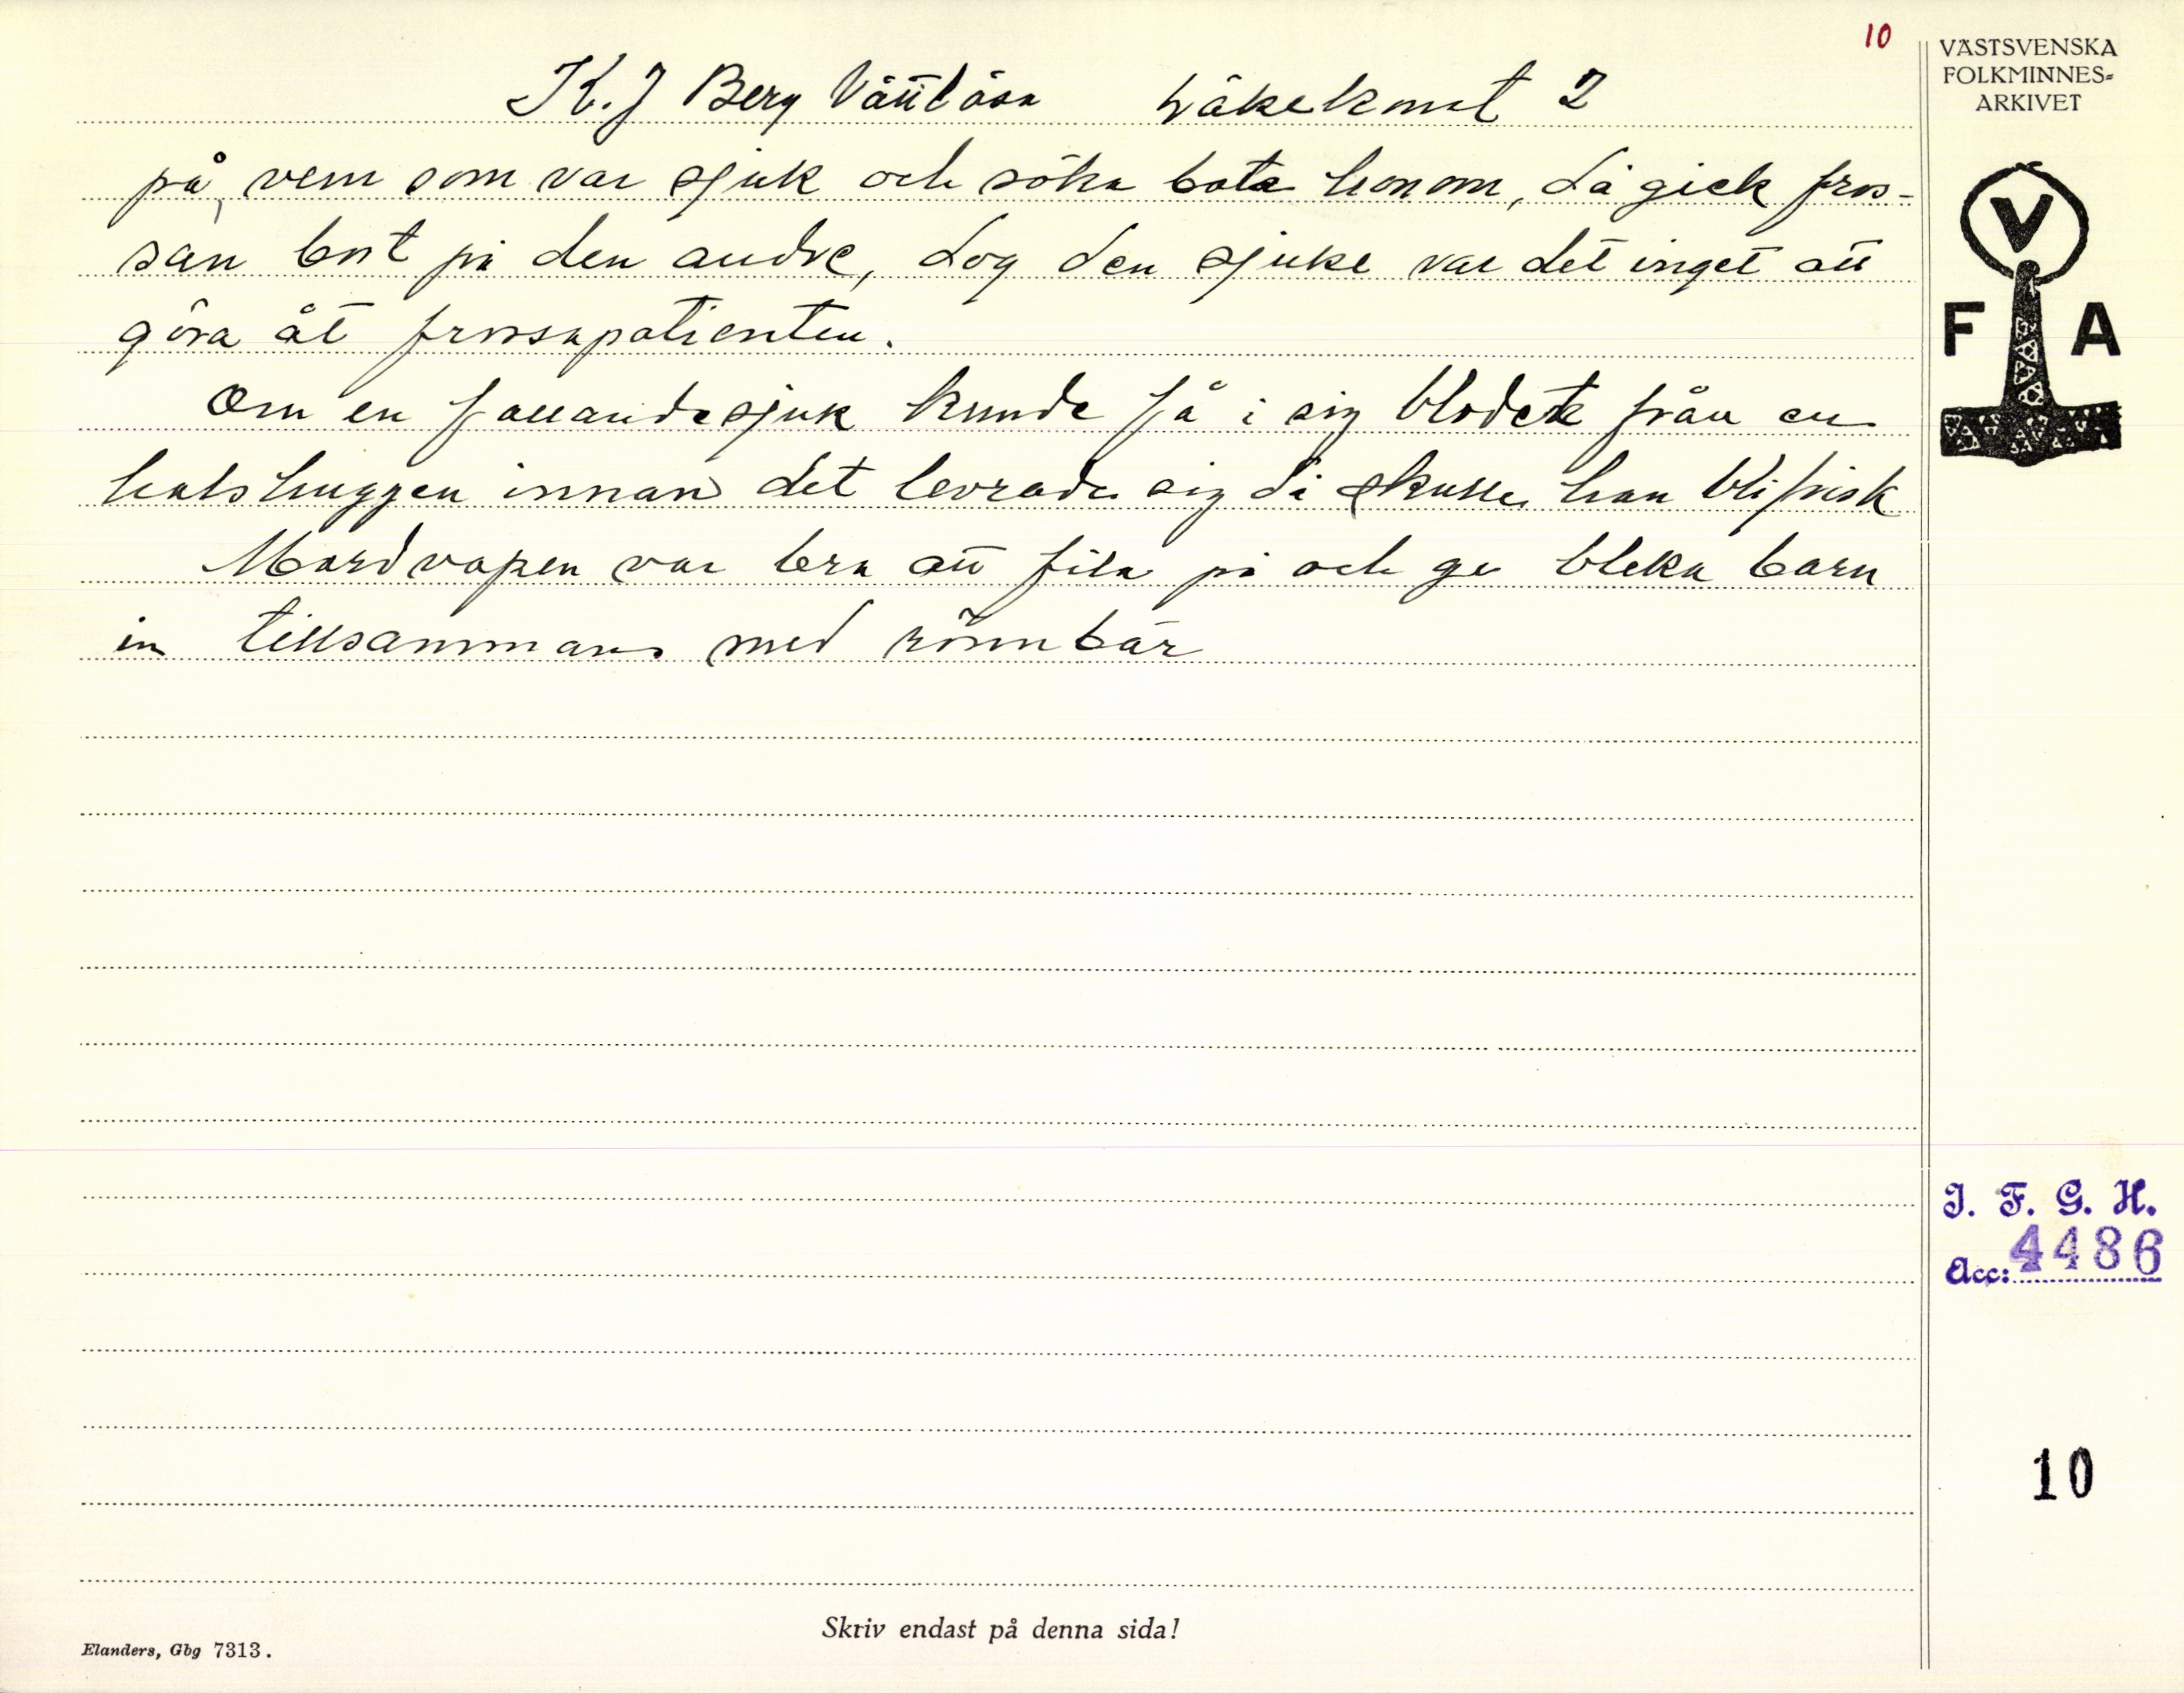 10
VÄSTSVENSKA
FOLKMINNES-
ARKIVET
K. J Berg Vättlösa Läkekonst 2
på, vem som var sjuk och söka bota honom, då gick fros-
san bort på den andre, dog den sjuke var det inget att
göra åt frossapatienten.
Om en fallandesjuk kunde få i sig blodet från en
halshuggen innan det levrade sig då skulle han bli frisk
Mordvapen var bra att fila på och ge bleka barn
in tillsammans med rönnbär
V
F A
I. F. G. H.
Acc: 4486
10
Skriv endast på denna sida!
Elanders, Gbg 7313.